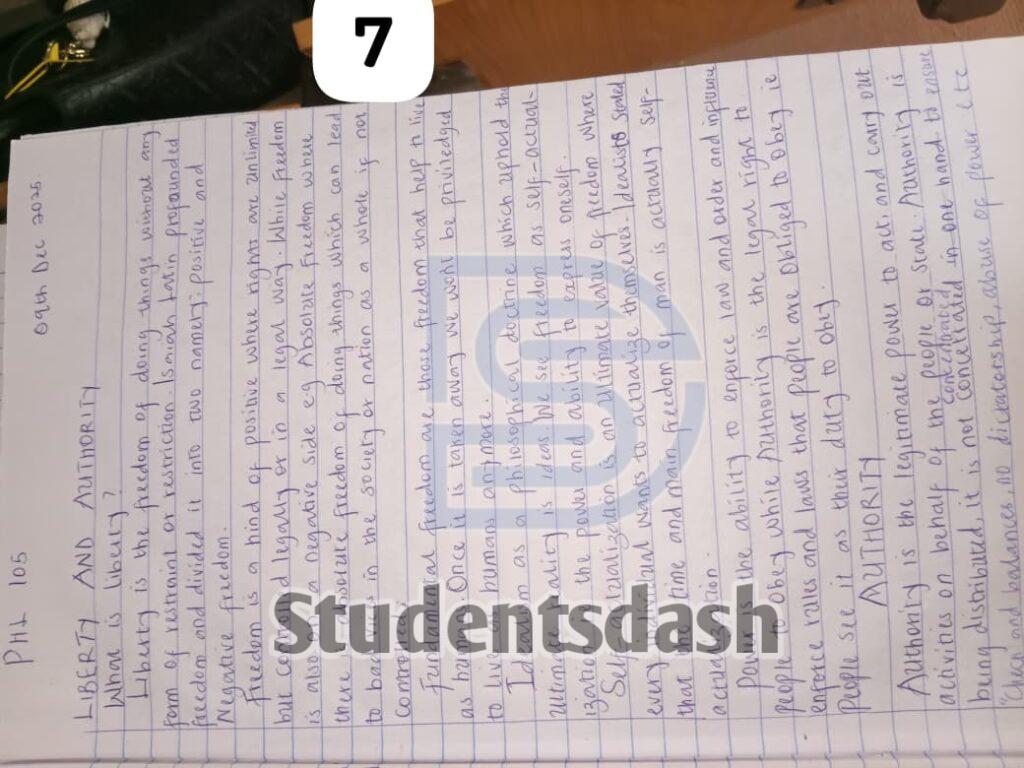 7
PHL 105
09th Dec 2025
LIBERTY AND AUTHORITY
What is liberty?
Liberty is the freedom of doing things without any
form of restraint or restriction. Isaiah propounded
freedom and divided it into two namely; positive and
Negative freedom.
Freedom is a kind of positive where rights are unlimited
but legally or in a legal way. While freedom
is also a negative side e.g Absolute Freedom where
there is Absolute freedom of doing things which can lead
to in the society or nation as a whole if not
Fundamental freedom are those freedom that help to live
as human. Once it is taken away we wont be priviledged
to live as humans anymore.
Idealism as a philosophical doctrine which uphold the
Ultimate reality is ideas. We see freedom as self-actual-
ization, the power and ability to express oneself.
Self actualization is an ultimate value of freedom where
every individual wants to actualize themselves. Idealists
that the time and main freedom of man is actually self-
actualization.
Power is the ability to enforce law and order and
people to obey while Authority is the legal right to
enforce rules and laws that people are Obliged to Obey ie
People see it as their duty to oby.
AUTHORITY
Authority is the legitimate power to act and carry out
activities on behalf of the people or State. Authority is
being distributed, it is not in one hand to ensure
"Check and balances, no dictatorship, abuse of power etc
Studentsdash